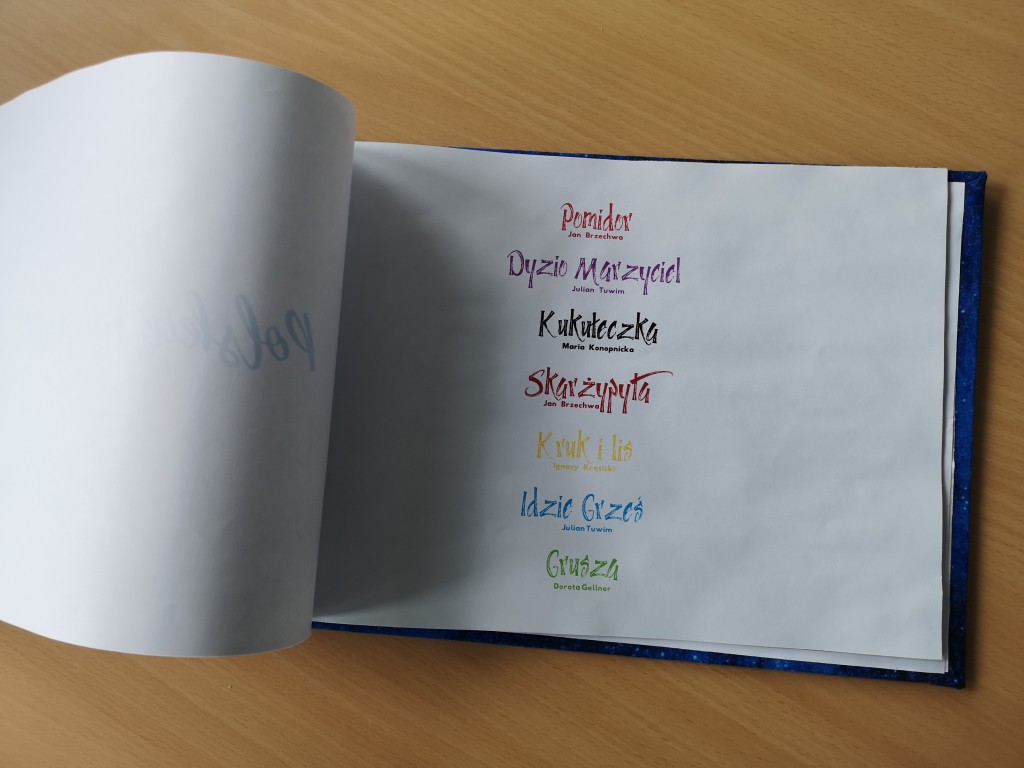 Polskie
Pomidor
Jan Brzechwa
Dyzio Marzyciel
Julian Tuwim
Kukułeczka
Maria Konopnicka
Skarżypyta
Jan Brzechwa
Kruk i lis
Ignacy Krasicki
Idzie Grześ
Julian Tuwim
Grusza
Dorota Gellner